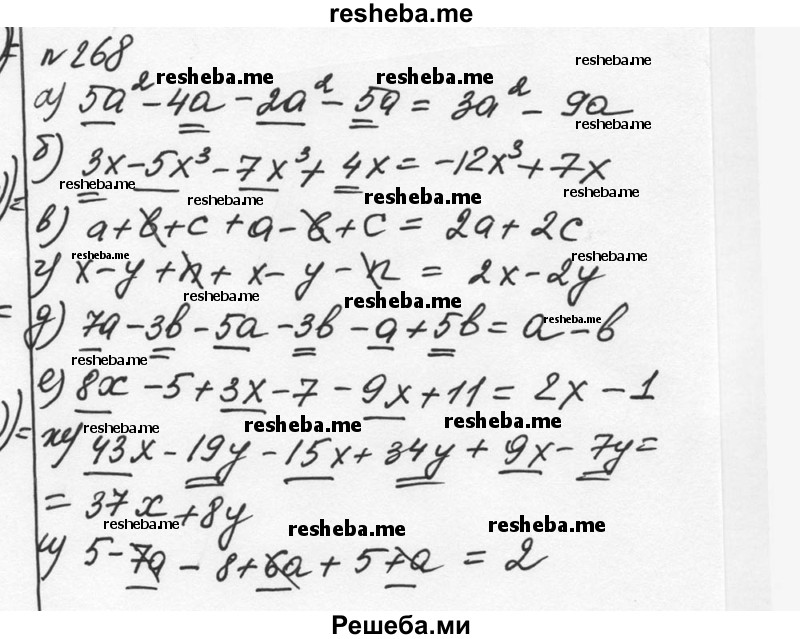 resheba.me
№ 268
resheba.me
resheba.me resheba.me
а) 5a² - 4a - 2a² - 5a = 3a² - 9a
resheba.me
б) 3x - 5x³ - 7x³ + 4x = -12x³ + 7x
resheba.me resheba.me resheba.me resheba.me
в) a + b + c + a - b + c = 2a + 2c
resheba.me resheba.me
г) x - y + n + x - y - n = 2x - 2y
resheba.me resheba.me
д) 7a - 3b - 5a - 3b - a + 5b = a - b
resheba.me
resheba.me
е) 8x - 5 + 3x - 7 - 9x + 11 = 2x - 1
resheba.me resheba.me resheba.me
ж) 43x - 19y - 15x + 34y + 9x - 7y =
= 37x + 8y
resheba.me resheba.me resheba.me
и) 5 - 7a - 8 + 6a + 5 + a = 2
Решеба.ми